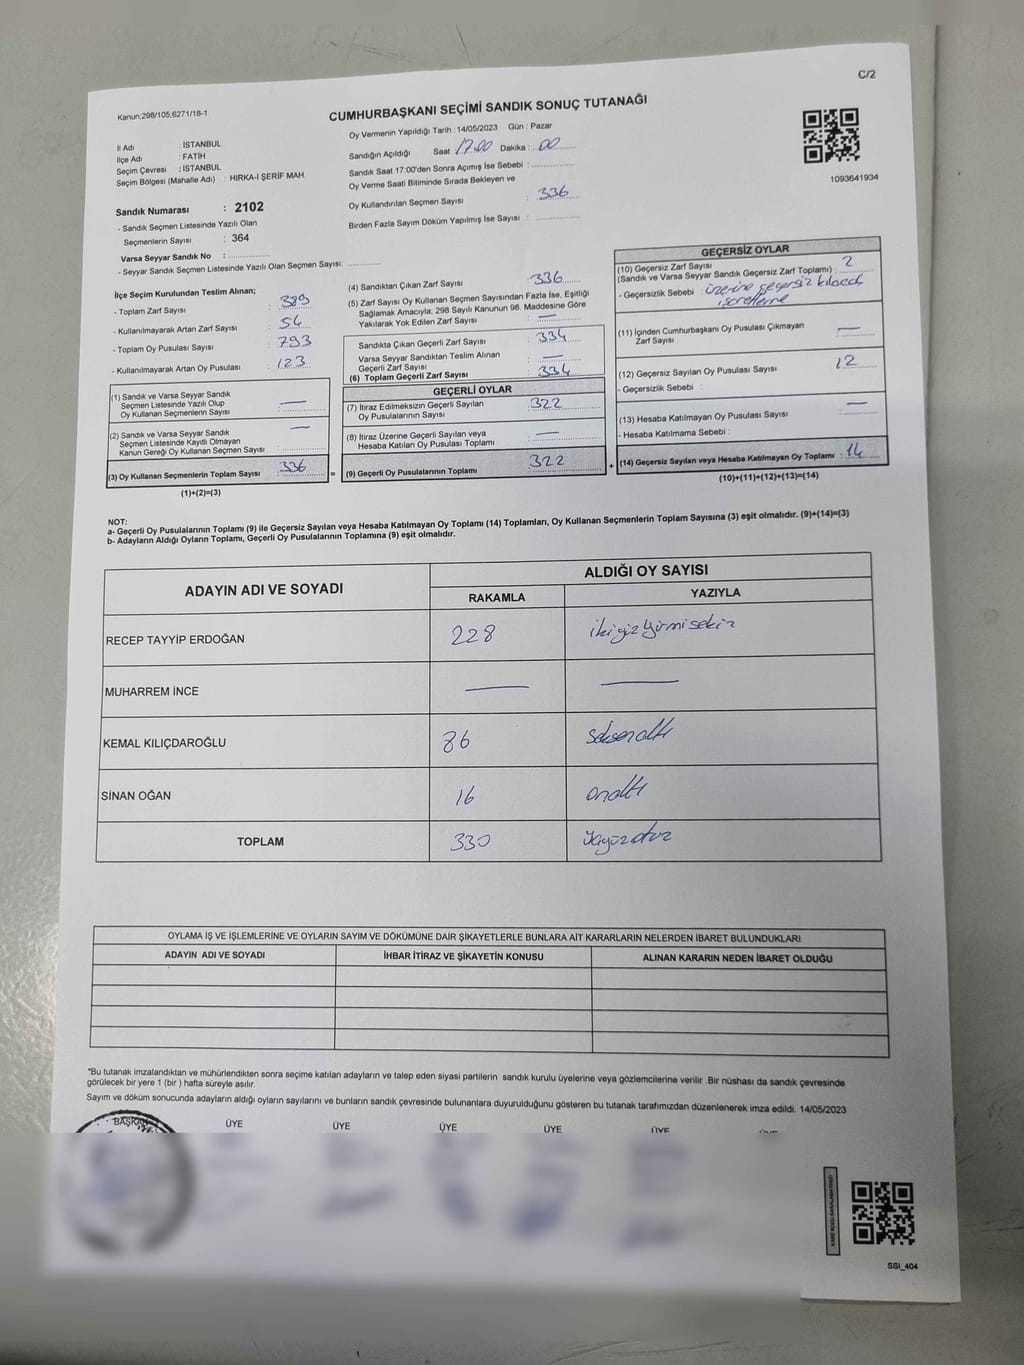 C/2
Kanun;298/105;6271/18-1
CUMHURBAŞKANI SEÇİMİ SANDIK SONUÇ TUTANAĞI
1093641934
İl Adı : İSTANBUL
İlçe Adı : FATİH
Seçim Çevresi : İSTANBUL
Seçim Bölgesi (Mahalle Adı) : HIRKA-İ ŞERİF MAH.
Sandık Numarası : 2102
- Sandık Seçmen Listesinde Yazılı Olan
Seçmenlerin Sayısı : 364
Varsa Seyyar Sandık No :
- Seyyar Sandık Seçmen Listesinde Yazılı Olan Seçmen Sayısı:
Oy Vermenin Yapıldığı Tarih : 14/05/2023 Gün : Pazar
Sandığın Açıldığı Saat 17.00 Dakika : 00
Sandık Saat 17:00'den Sonra Açımış İse Sebebi :
Oy Verme Saati Bitiminde Sırada Bekleyen ve
Oy Kullandırılan Seçmen Sayısı : 336
Birden Fazla Sayım Döküm Yapılmış İse Sayısı :
İlçe Seçim Kurulundan Teslim Alınan;
- Toplam Zarf Sayısı : 389
- Kullanılmayarak Artan Zarf Sayısı : 54
- Toplam Oy Pusulası Sayısı : 793
- Kullanılmayarak Artan Oy Pusulası : 123
(1) Sandık ve Varsa Seyyar Sandık
Seçmen Listesinde Yazılı Olup
Oy Kullanan Seçmenlerin Sayısı : —
(2) Sandık ve Varsa Seyyar Sandık
Seçmen Listesinde Kayıtlı Olmayan
Kanun Gereği Oy Kullanan Seçmen Sayısı : —
(3) Oy Kullanan Seçmenlerin Toplam Sayısı : 336 =
(1)+(2)=(3)
(4) Sandıktan Çıkan Zarf Sayısı : 336
(5) Zarf Sayısı Oy Kullanan Seçmen Sayısından Fazla İse, Eşitliği
Sağlamak Amacıyla; 298 Sayılı Kanunun 98. Maddesine Göre
Yakılarak Yok Edilen Zarf Sayısı : —
Sandıkta Çıkan Geçerli Zarf Sayısı : 334
Varsa Seyyar Sandıktan Teslim Alınan
Geçerli Zarf Sayısı : —
(6) Toplam Geçerli Zarf Sayısı : 334
GEÇERLİ OYLAR
(7) İtiraz Edilmeksizin Geçerli Sayılan
Oy Pusulalarının Sayısı : 322
(8) İtiraz Üzerine Geçerli Sayılan veya
Hesaba Katılan Oy Pusulası Toplamı : —
(9) Geçerli Oy Pusulalarının Toplamı : 322 +
GEÇERSİZ OYLAR
(10) Geçersiz Zarf Sayısı
(Sandık ve Varsa Seyyar Sandık Geçersiz Zarf Toplamı) : 2
- Geçersizlik Sebebi : üzerine geçersiz kılacak
işaretleme
(11) İçinden Cumhurbaşkanı Oy Pusulası Çıkmayan
Zarf Sayısı : —
(12) Geçersiz Sayılan Oy Pusulası Sayısı : 12
- Geçersizlik Sebebi :
(13) Hesaba Katılmayan Oy Pusulası Sayısı : —
- Hesaba Katılmama Sebebi :
(14) Geçersiz Sayılan veya Hesaba Katılmayan Oy Toplamı : 14
(10)+(11)+(12)+(13)=(14)
NOT:
a- Geçerli Oy Pusulalarının Toplamı (9) ile Geçersiz Sayılan veya Hesaba Katılmayan Oy Toplamı (14) Toplamları, Oy Kullanan Seçmenlerin Toplam Sayısına (3) eşit olmalıdır. (9)+(14)=(3)
b- Adayların Aldığı Oyların Toplamı, Geçerli Oy Pusulalarının Toplamına (9) eşit olmalıdır.
ADAYIN ADI VE SOYADI ALDIĞI OY SAYISI
RAKAMLA YAZIYLA
RECEP TAYYİP ERDOĞAN 228 ikiyüzyirmisekiz
MUHARREM İNCE — —
KEMAL KILIÇDAROĞLU 86 seksenaltı
SİNAN OĞAN 16 onaltı
TOPLAM 330 üçyüzotuz
OYLAMA İŞ VE İŞLEMLERİNE VE OYLARIN SAYIM VE DÖKÜMÜNE DAİR ŞİKAYETLERLE BUNLARA AİT KARARLARIN NELERDEN İBARET BULUNDUKLARI
ADAYIN ADI VE SOYADI İHBAR İTİRAZ VE ŞİKAYETİN KONUSU ALINAN KARARIN NEDEN İBARET OLDUĞU
*Bu tutanak imzalandıktan ve mühürlendikten sonra seçime katılan adayların ve talep eden siyasi partilerin sandık kurulu üyelerine veya gözlemcilerine verilir .Bir nüshası da sandık çevresinde
görülecek bir yere 1 (bir ) hafta süreyle asılır.
Sayım ve döküm sonucunda adayların aldığı oyların sayılarını ve bunların sandık çevresinde bulunanlara duyurulduğunu gösteren bu tutanak tarafımızdan düzenlenerek imza edildi. 14/05/2023
BAŞKAN ÜYE ÜYE ÜYE ÜYE ÜYE ÜYE
SSI_404